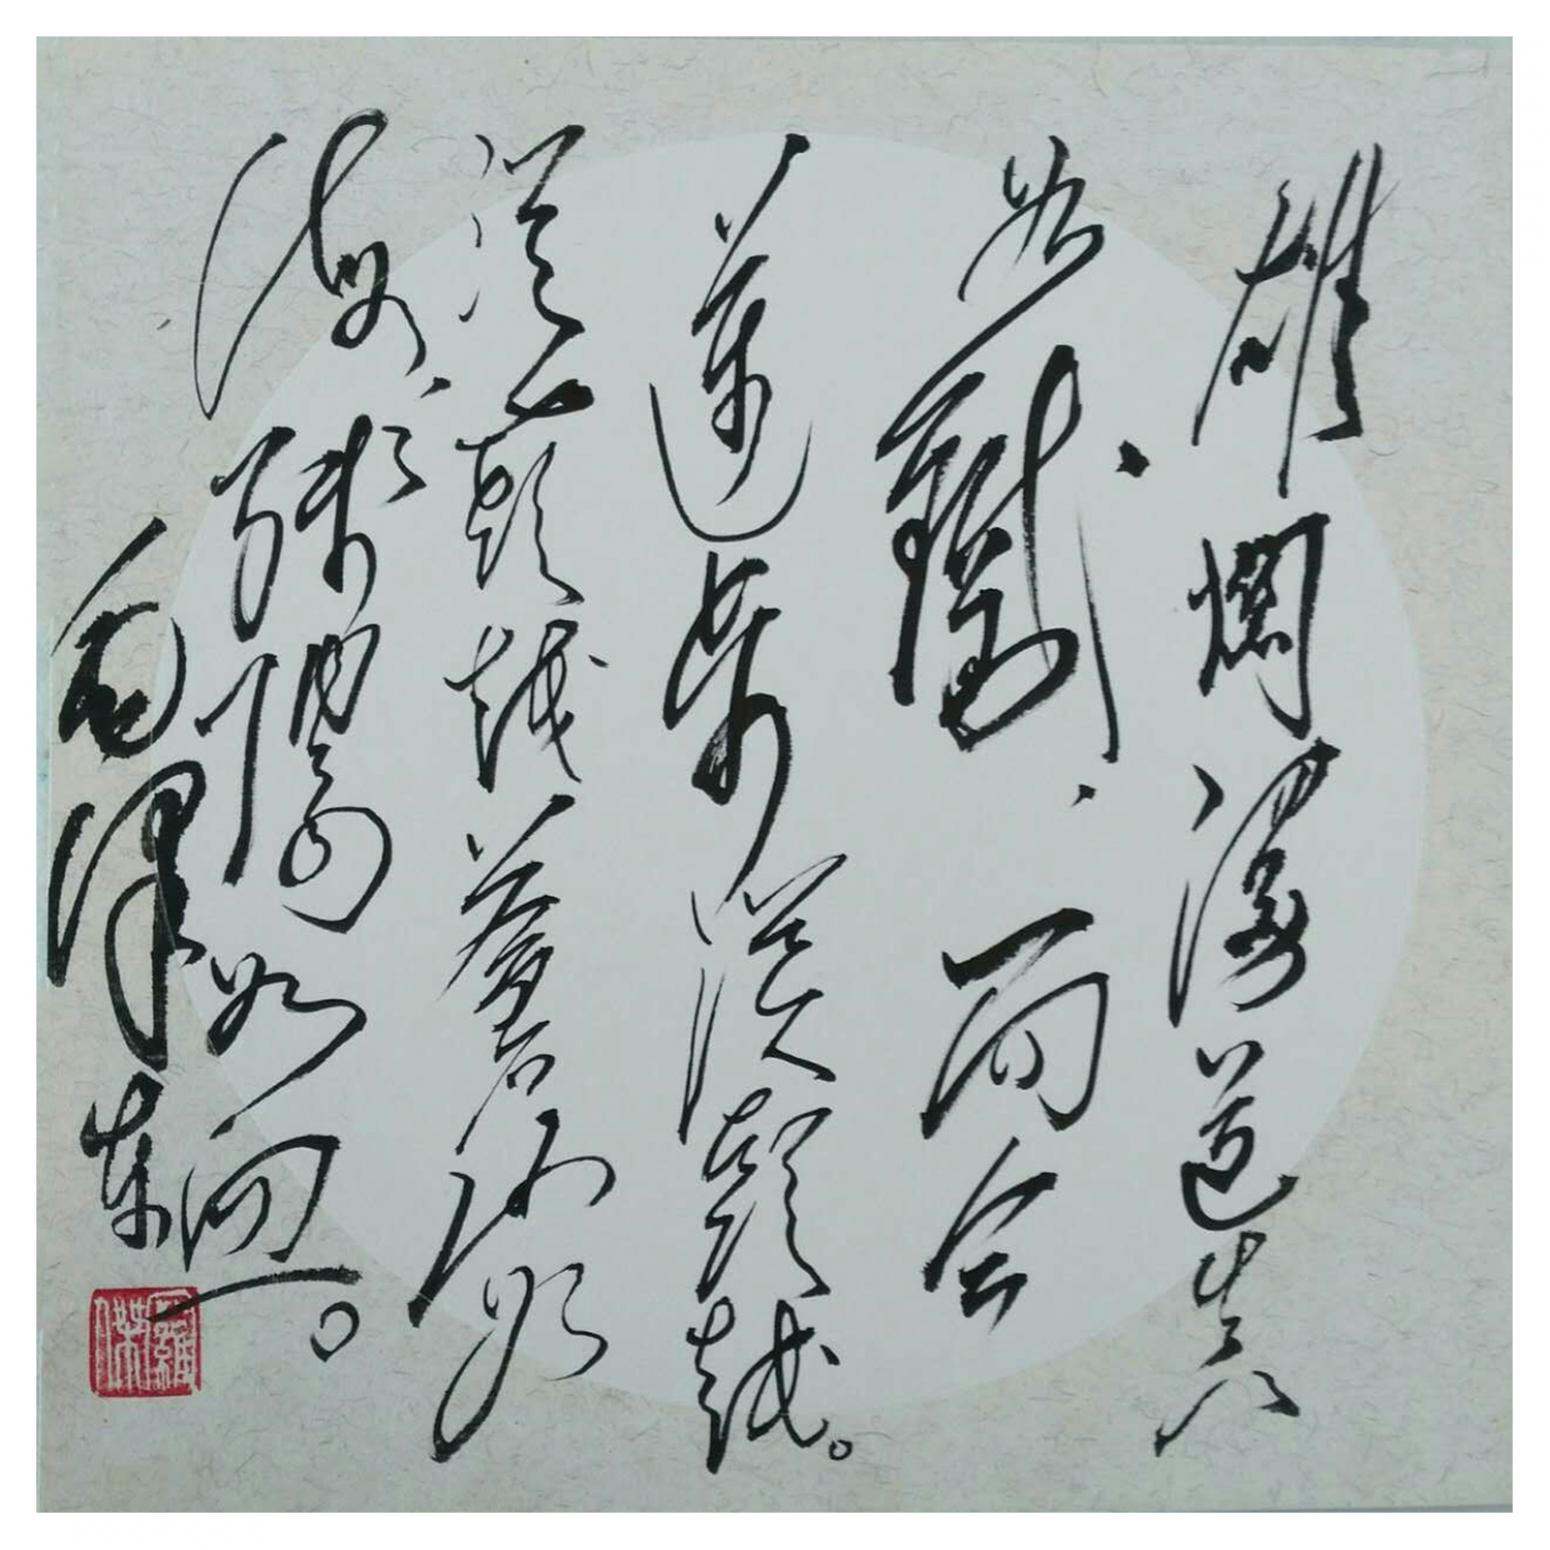 雄關漫道真
如鐵、而今
邁步從頭越。
從頭越蒼山如
海、殘陽如血。
毛澤東